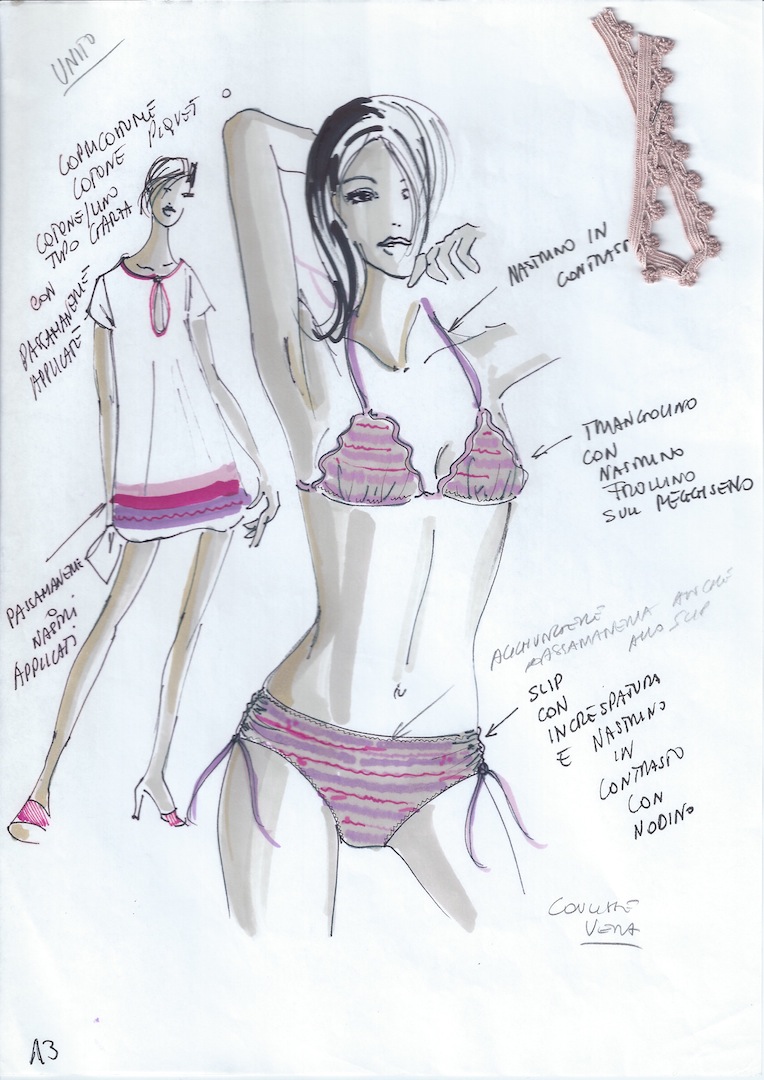 UNITO
COPRICOSTUME
COTONE PIQUET O
COTONE/LINO
TIPO GARZA
CON
PASSAMANERIE
APPLICATE
NASTRINO IN
CONTRASTO
TRIANGOLINO
CON
NASTRINO
FRULLINO
SUL REGGISENO
PASSAMANERIE
O
NASTRI
APPLICATI
AGGIUNGERE
PASSAMANERIA ANCHE
ALLO SLIP
SLIP
CON
INCRESPATURA
E NASTRINO
IN
CONTRASTO
CON
NODINO
VERA
A3